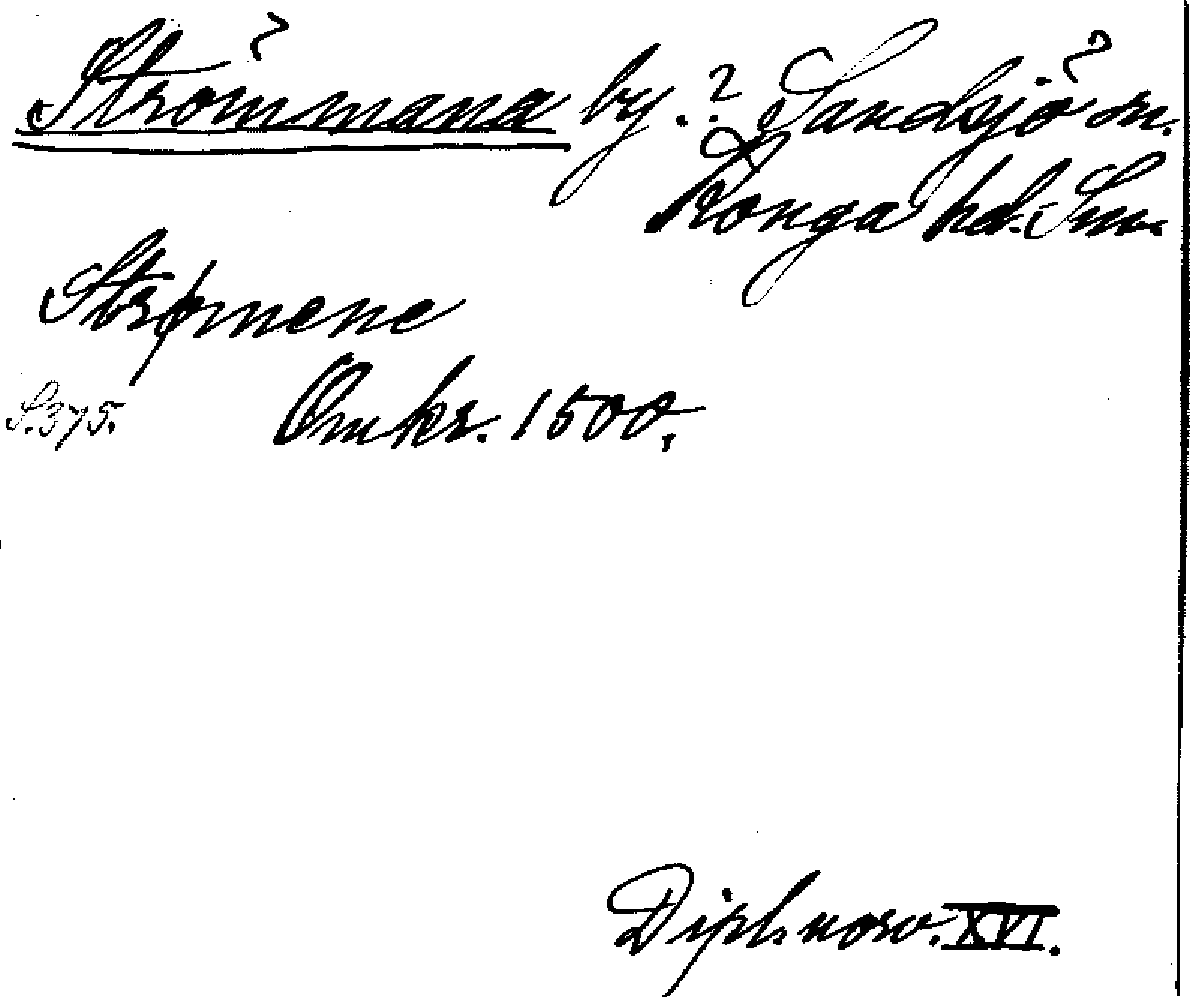 Strömmana? by.? Sandsjö? sn.
Konga hd. Sm.
Strømene
S. 375. Omkr. 1500.
Dipl. norv. XVI.